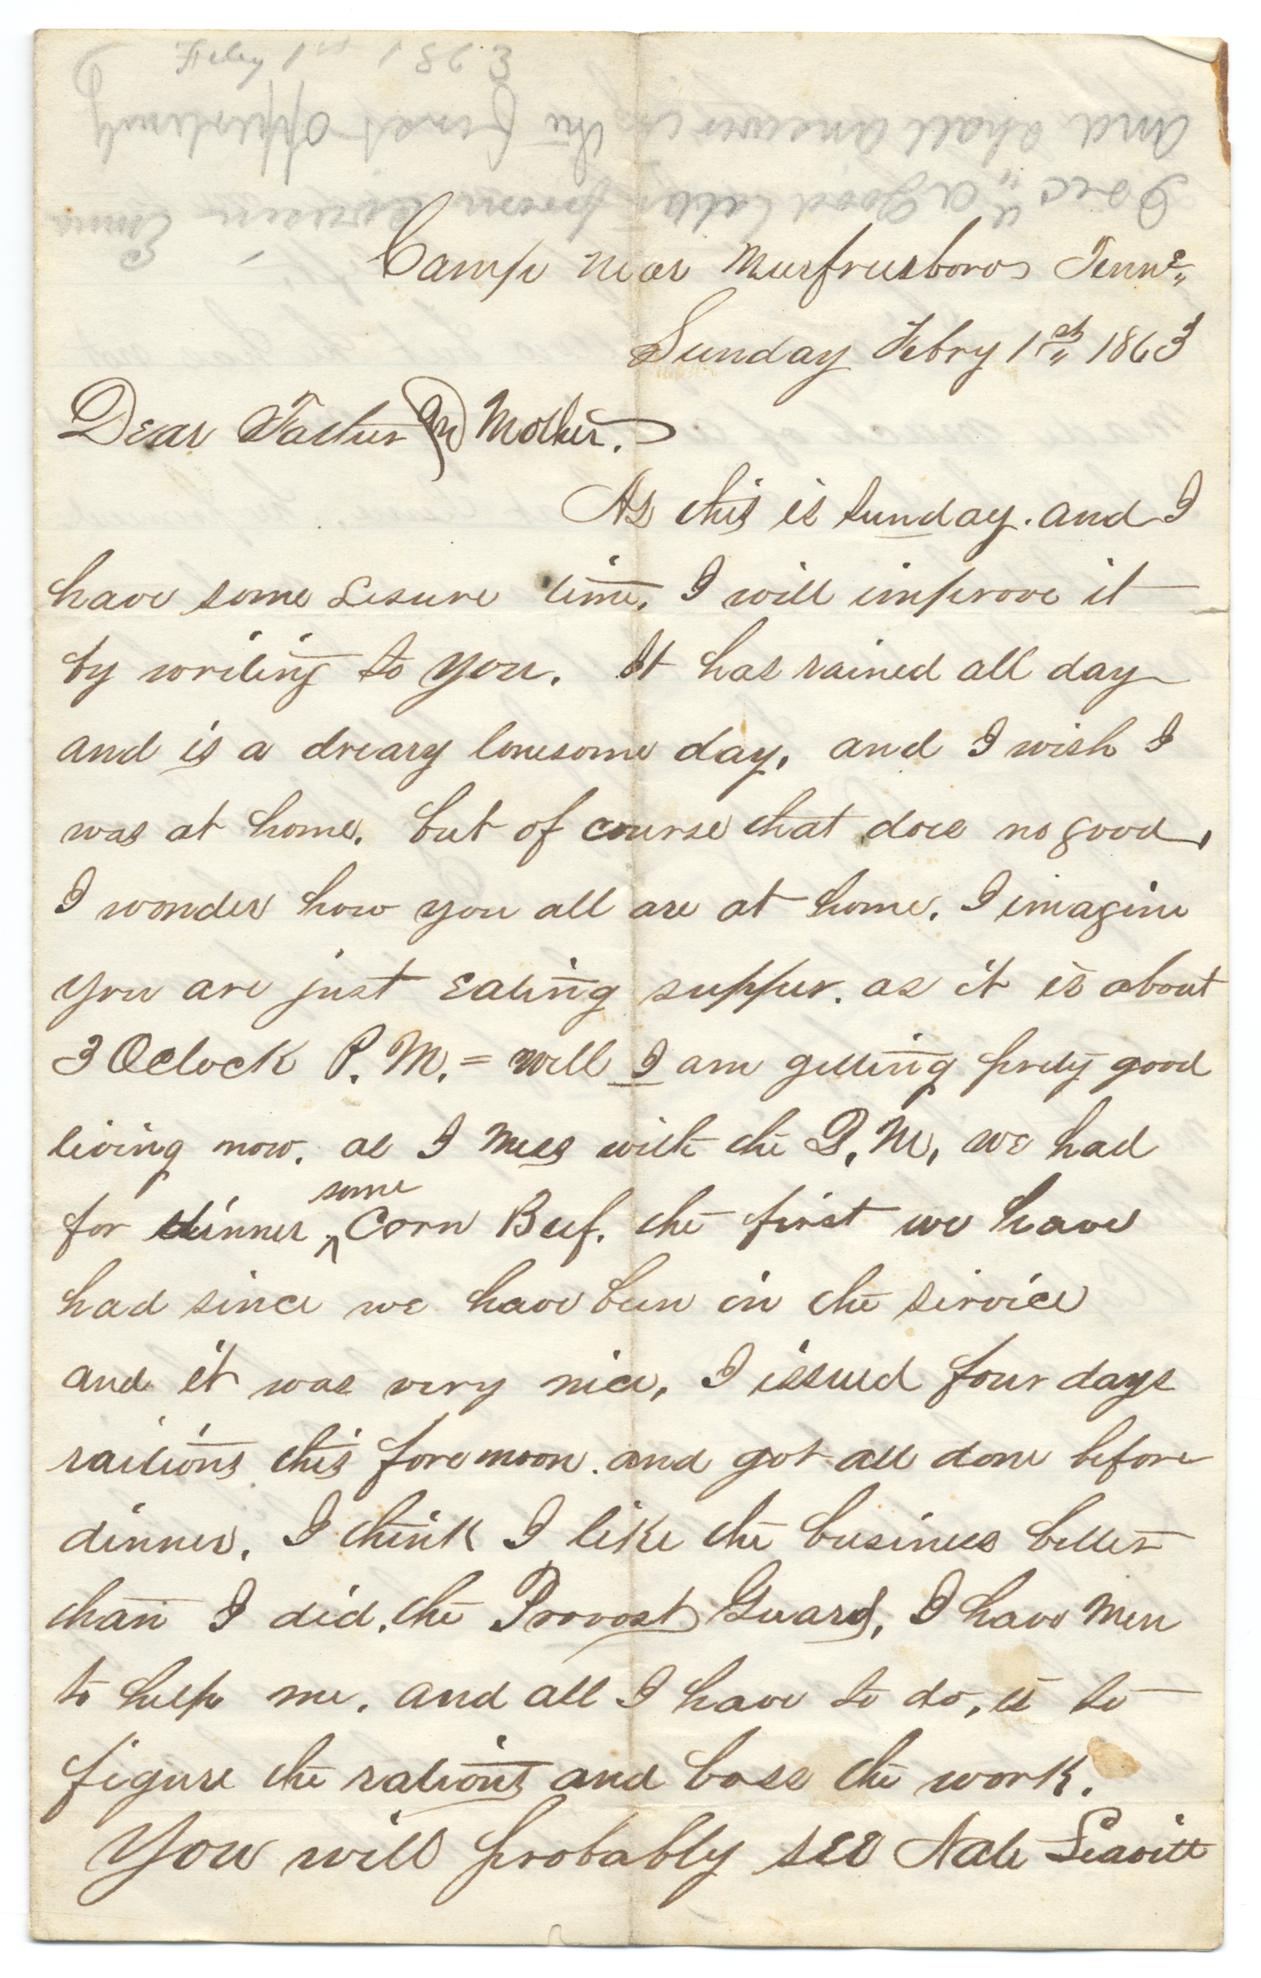 Feby 1st 1863
Recd a good letter from Edwin & Emma
and shall answer the first opportunity
Camp near Murfreesboro Tenne,,
Sunday Febry 1st,, 1863
Dear Father and Mother.
As this is Sunday. and I
have some Lesure time. I will improve it
by writing to you. It has rained all day
and is a dreary lonesome day, and I wish I
was at home. but of course that does no good,
I wonder how you all are at home. I imagine
you are just Eating supper. as it is about
3 Oclock P. M. = Well I am getting prety good
living now. as I Mess with the Q. M, we had
for dinner some Corn Beef. the first we have
had since we have been in the service
and it was very nice, I issued four days
raitions this forenoon. and got all done before
dinner. I think I like the business better
than I did. the Provost Guard, I have Men
to help me. and all I have to do, is to
figure the rations and boss the work.
You will probably see Nate Leavitt